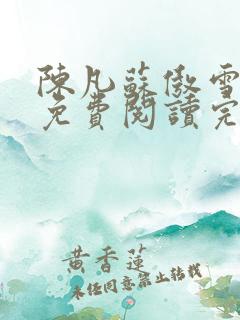 陳凡蘇傲雪
免費閱讀完
黃香蓮
未經同意禁止轉載